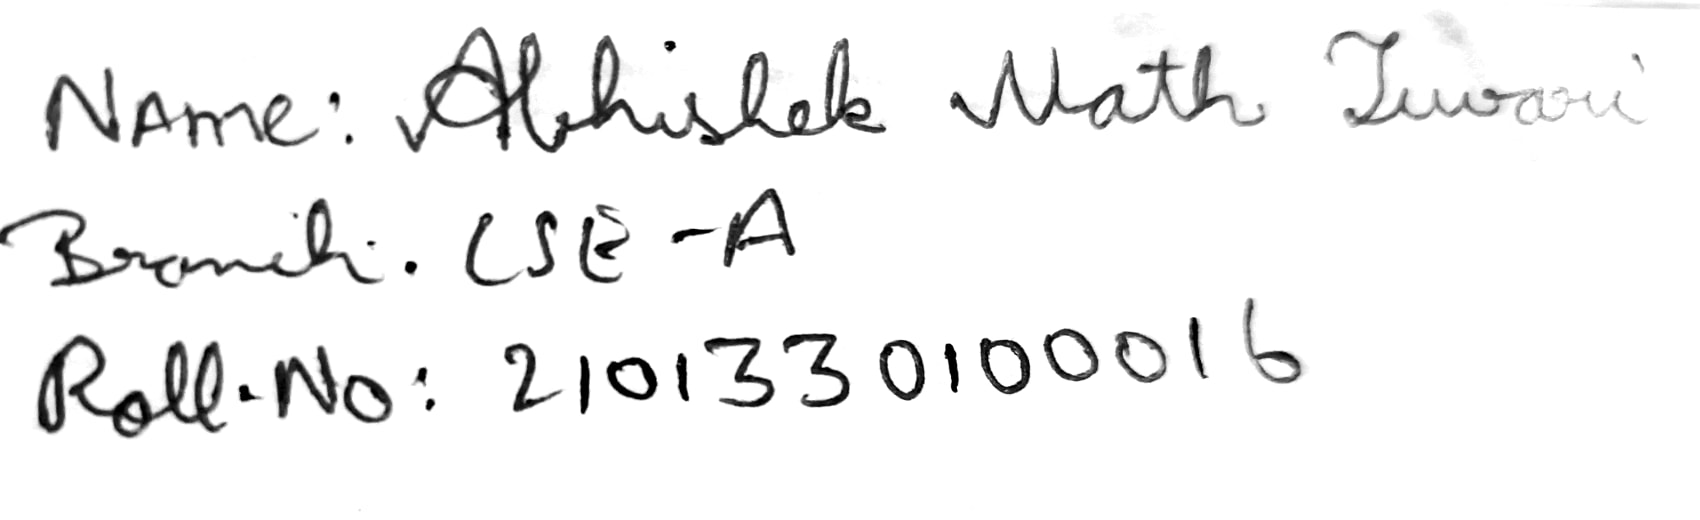 Name: Abhishek Nath Tiwari
Branch. CSE -A
Roll.No: 2101330100016